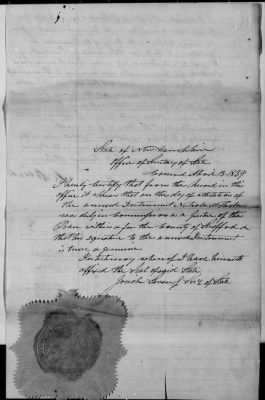 State of New Hampshire
Office of Secretary of State
Concord April 13. 1839
I hereby Certify that from the record in this
office it appears that on the day of attestation of
the annexed Instrument Nicholas
was duly in Commission as a justice of the
Peace within & for the County of Strafford &
that his signature to the annexed Instrument
is true & genuine
In testimony whereof I have hereunto
affixed the Seal of said State,
Josiah Stevens Jr Secy of State